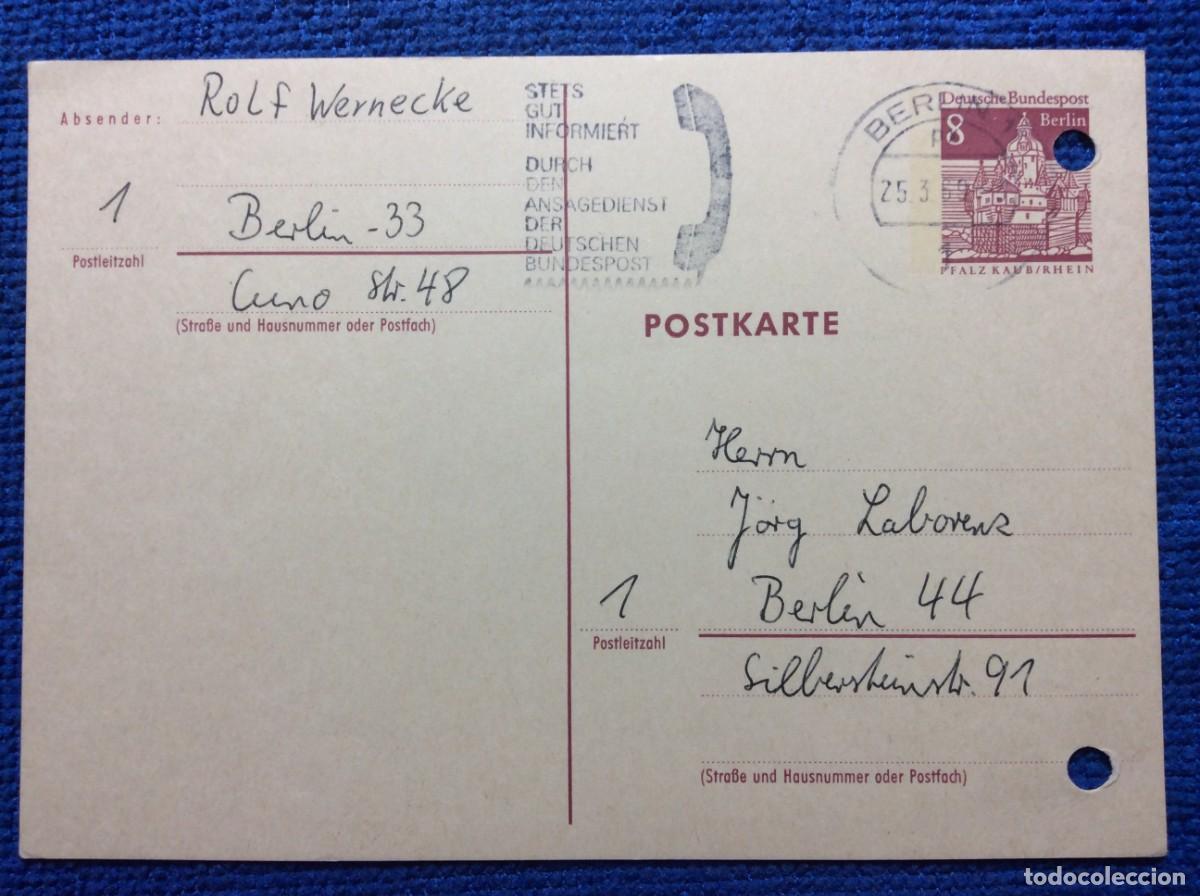 Absender:
Rolf Wernecke
1
Berlin -33
Postleitzahl
Cuno Str. 48
(Straße und Hausnummer oder Postfach)
STETS
GUT
INFORMIERT
DURCH
DEN
ANSAGEDIENST
DER
DEUTSCHEN
BUNDESPOST
BERLIN
25.3.69
Deutsche Bundespost
8
Berlin
PFALZ KAUB/RHEIN
POSTKARTE
Herrn
Jörg Laborenz
1
Berlin 44
Postleitzahl
Silbersteinstr. 91
(Straße und Hausnummer oder Postfach)
todocoleccion